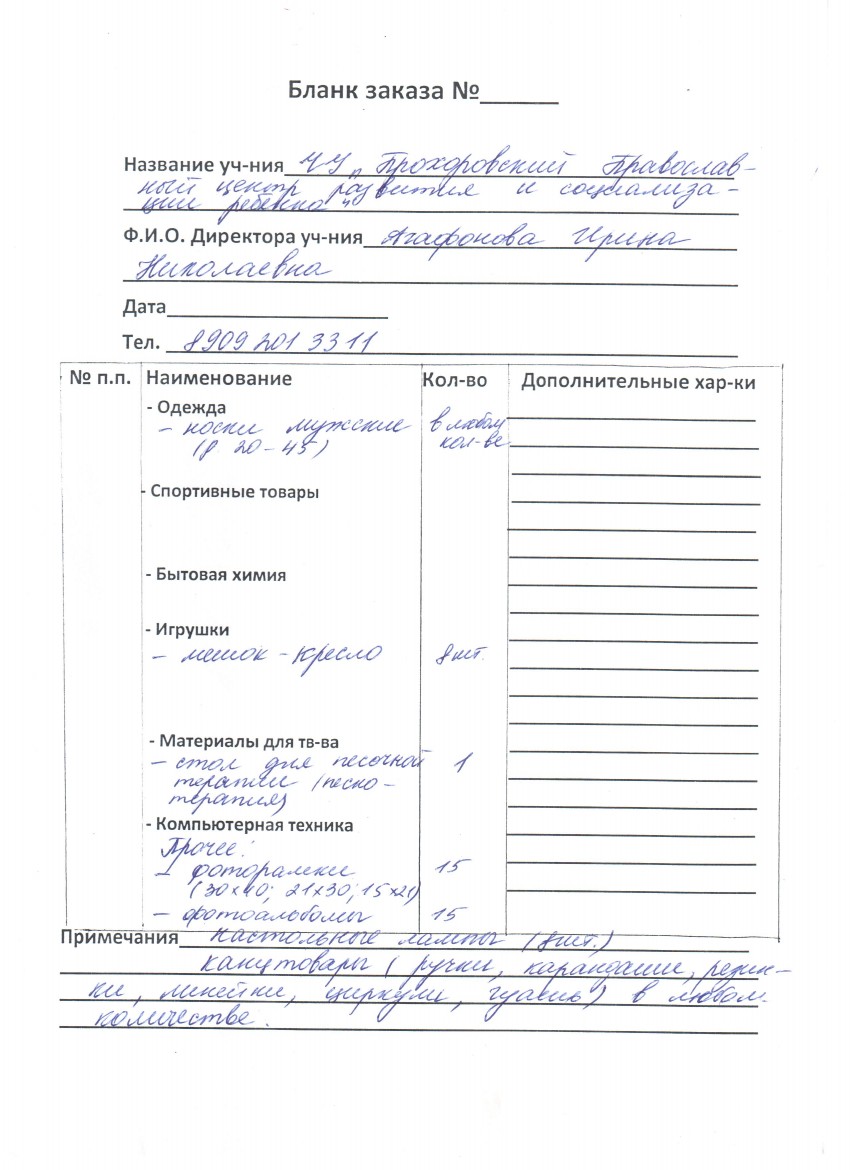 Бланк заказа №______
Название уч-ния ЧУ „Прохоровский Православ-
ный центр развития и социализа-
ции ребенка"
Ф.И.О. Директора уч-ния Агафонова Ирина
Николаевна
Дата
Тел. 8909 201 33 11
№ п.п. Наименование Кол-во Дополнительные хар-ки
- Одежда
- носки мужские в любом
(р 20-45) кол-ве
- Спортивные товары
- Бытовая химия
- Игрушки
- мешок-кресло 8шт.
- Материалы для тв-ва
- стол для песочной 1
терапии (песко-
терапия)
- Компьютерная техника
Прочее:
- фоторамки 15
(30×40; 21×30; 15×21)
- фотоальбомы 15
Примечания настольные лампы (8шт.)
канцтовары (ручки, карандаши, резин-
ки, линейки, циркули, гуашь) в любом
количестве.